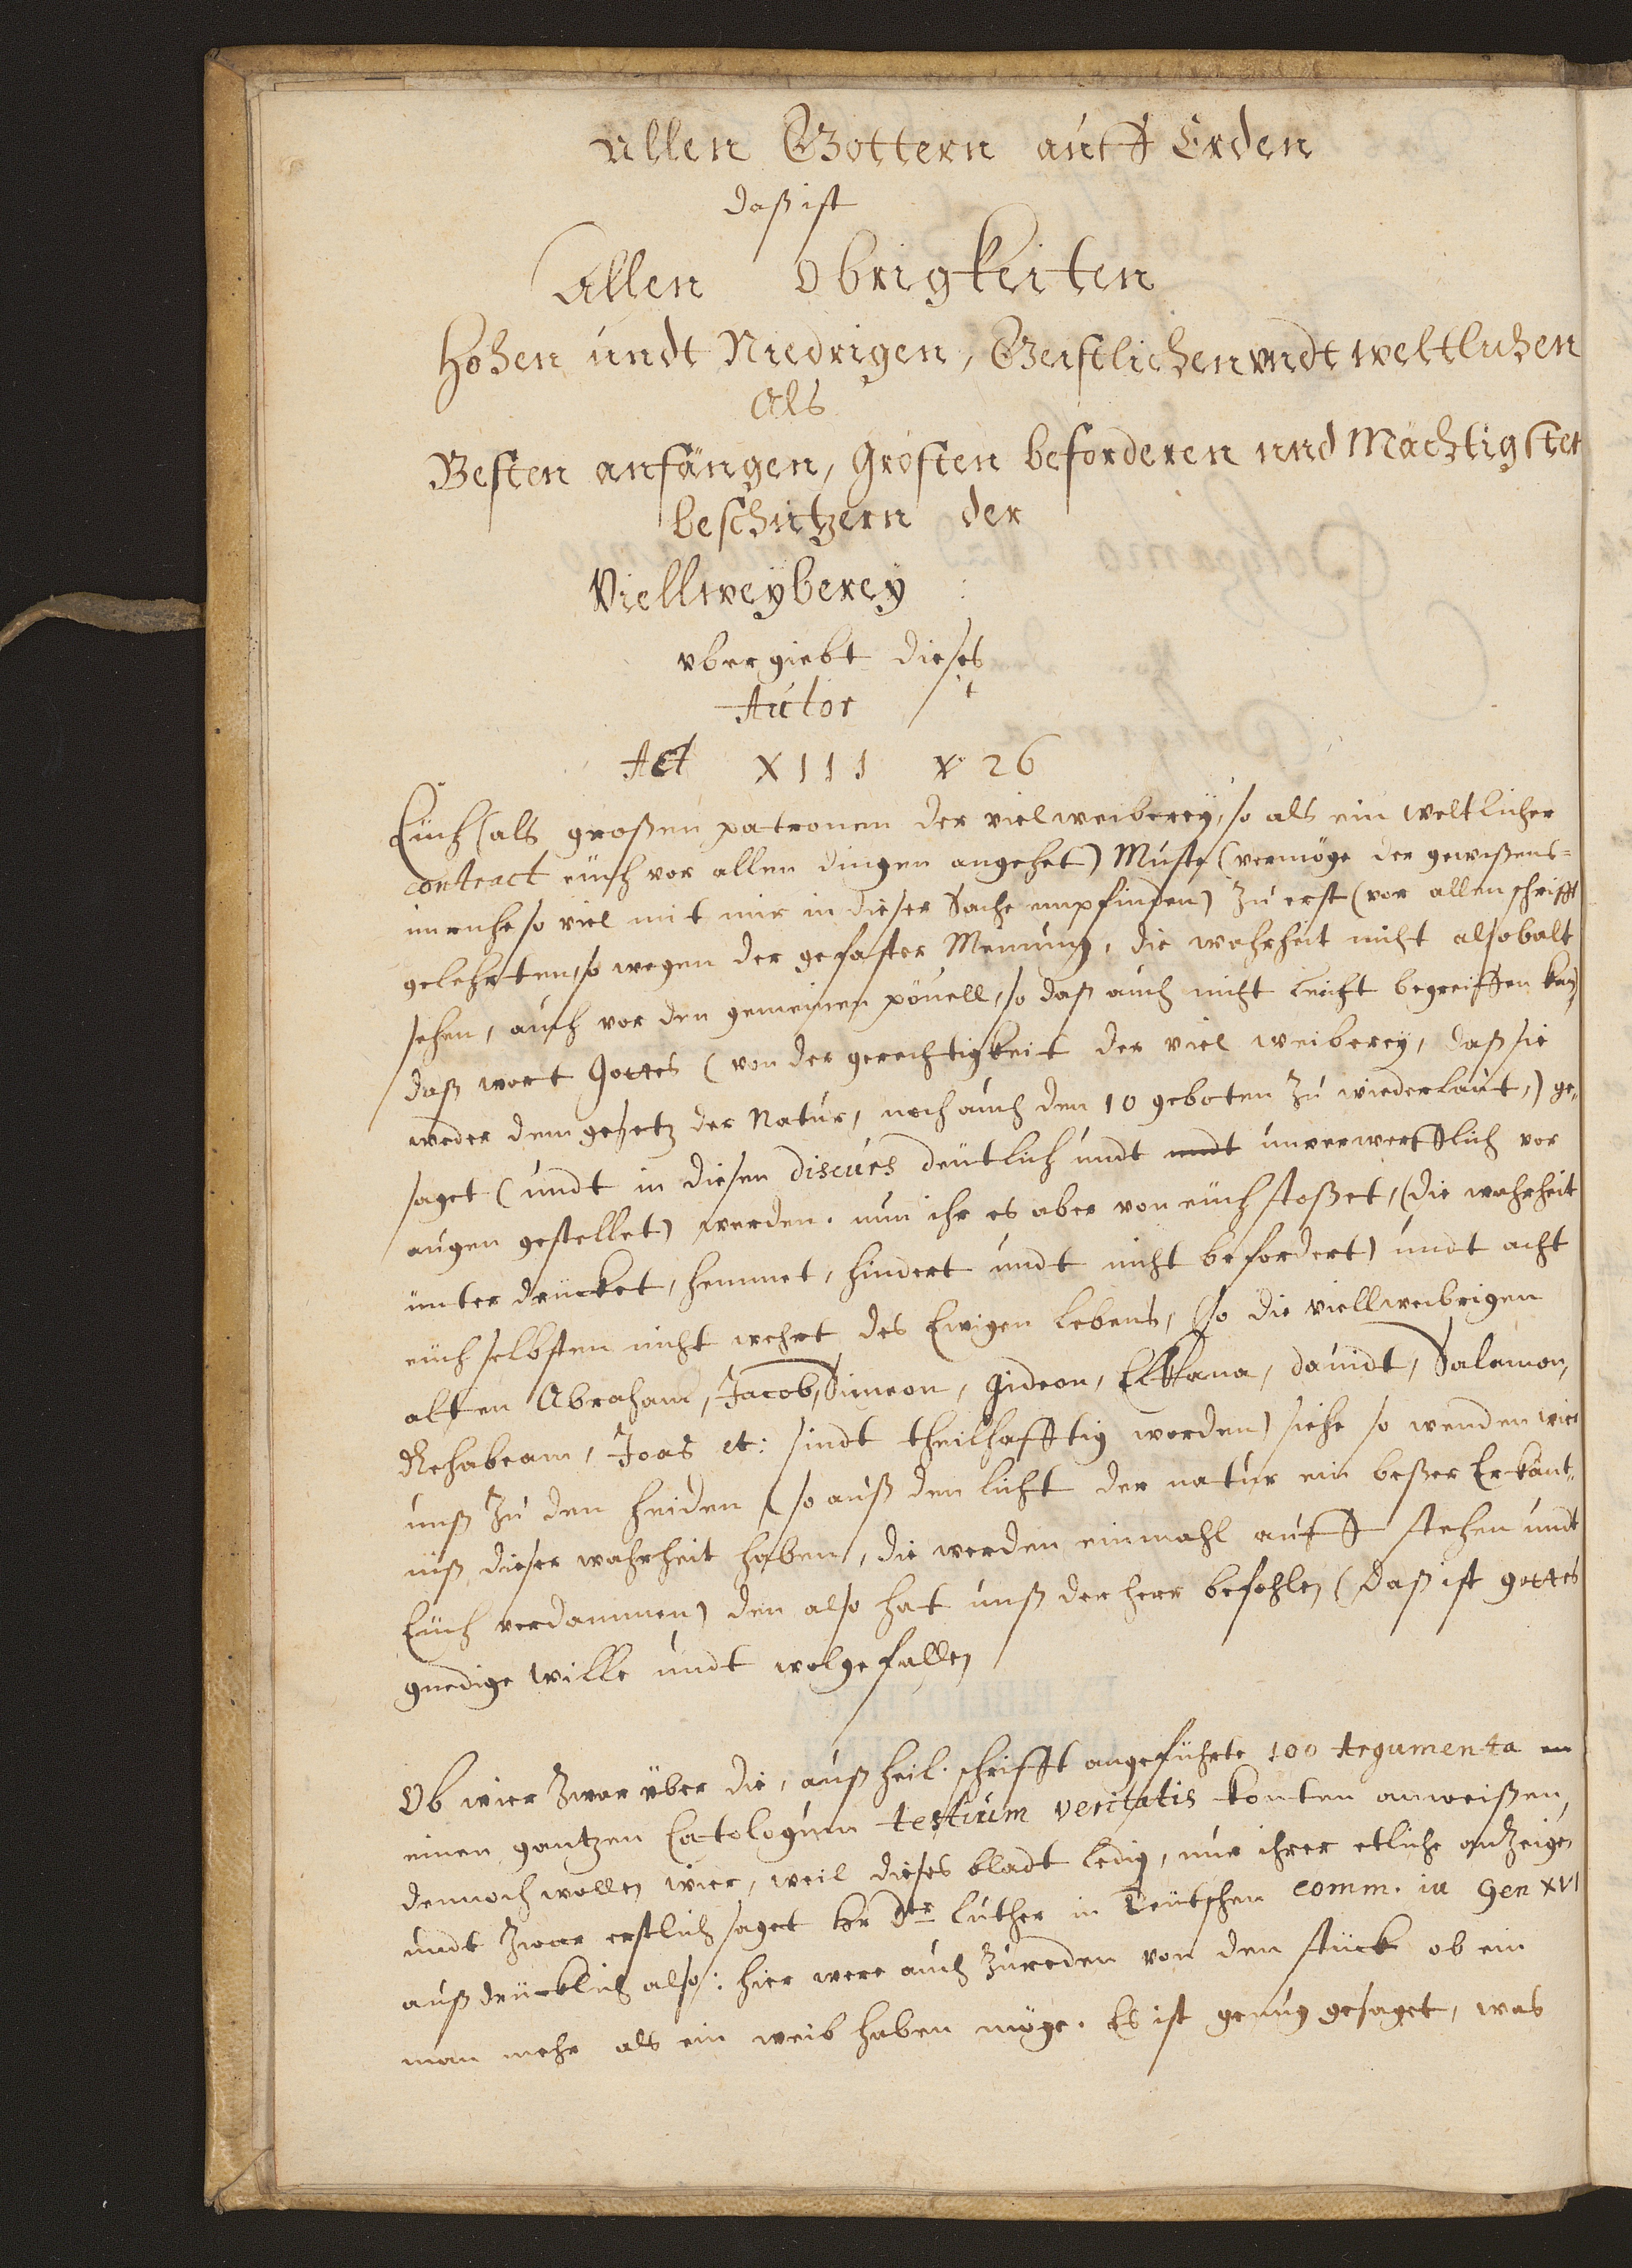 Allen Gottern auff Erden
daß ist
Allen Obrigkeiten
Hohen undt Niedrigen, Geistlichen undt weltlichen
Als
Besten anfängen, Grösten beforderen und Mächtigsten
beschutzern der
Viellweyberey
vbergiebt dieses
Autor
Act XIII v 26
Euch (als großen patronen der vielweiberey, so als ein weltlicher
contract euch vor allen dingen angehet) Muste (vermöge der gewißens-
unruhe so viel mit mir in dieser Sache empfinden) zu erst (vor allen schrifft
gelehrten, so wegen der gefaster Meinung, die wahrheit nicht alsobalt
sehen, auch vor den gemeinen pöuell, so daß auch nicht leicht begreiffen kan)
daß wort Gottes (von der gerechtigkeit der viel weiberey, daß sie
weder dem gesetz der Natur, noch auch den 10 geboten zu wiederlaut,) ge-
saget (undt in diesen discurs deutlich undt undt unverwerfflich vor
augen gestellet) werden. nun ihr es aber von euch stoßet, (die wahrheit
unter drucket, hemmet, hindert undt nicht befordert) undt acht
euch selbsten nicht wehrt des Ewigen lebens, (so die viellweibrigen
alten Abraham, Jacob, Simeon, Gideon, Elkana, dauidt, Salomon,
Rehabeam, Joas et: sindt theilhafftig worden) siehe so wenden wir
unß zu den heiden (so auß den licht der natur ein beßer Erkänt-
nüß dieser wahrheit haben, die werden einmahl auff stehen undt
Euch verdammen) den also hat unß der herr befohlen (daß ist gottes
gnedige wille undt wolgefallen
Ob wier zwar über die, auß heil. schrifft angeführte 100 Argumenta en
einen gantzen Catologum testium veritatis konten anweißen,
dennoch wollen wier, weil dieses bladt ledig, nur ihrer etliche anzeigen
undt zwar erstlich saget hr Dtr Luther in Teutschen comm. in Gen XVI
außdrücklich also: hier were auch zureden von den stück ob ein
man mehr als ein weib haben möge. Es ist genug gesaget, was